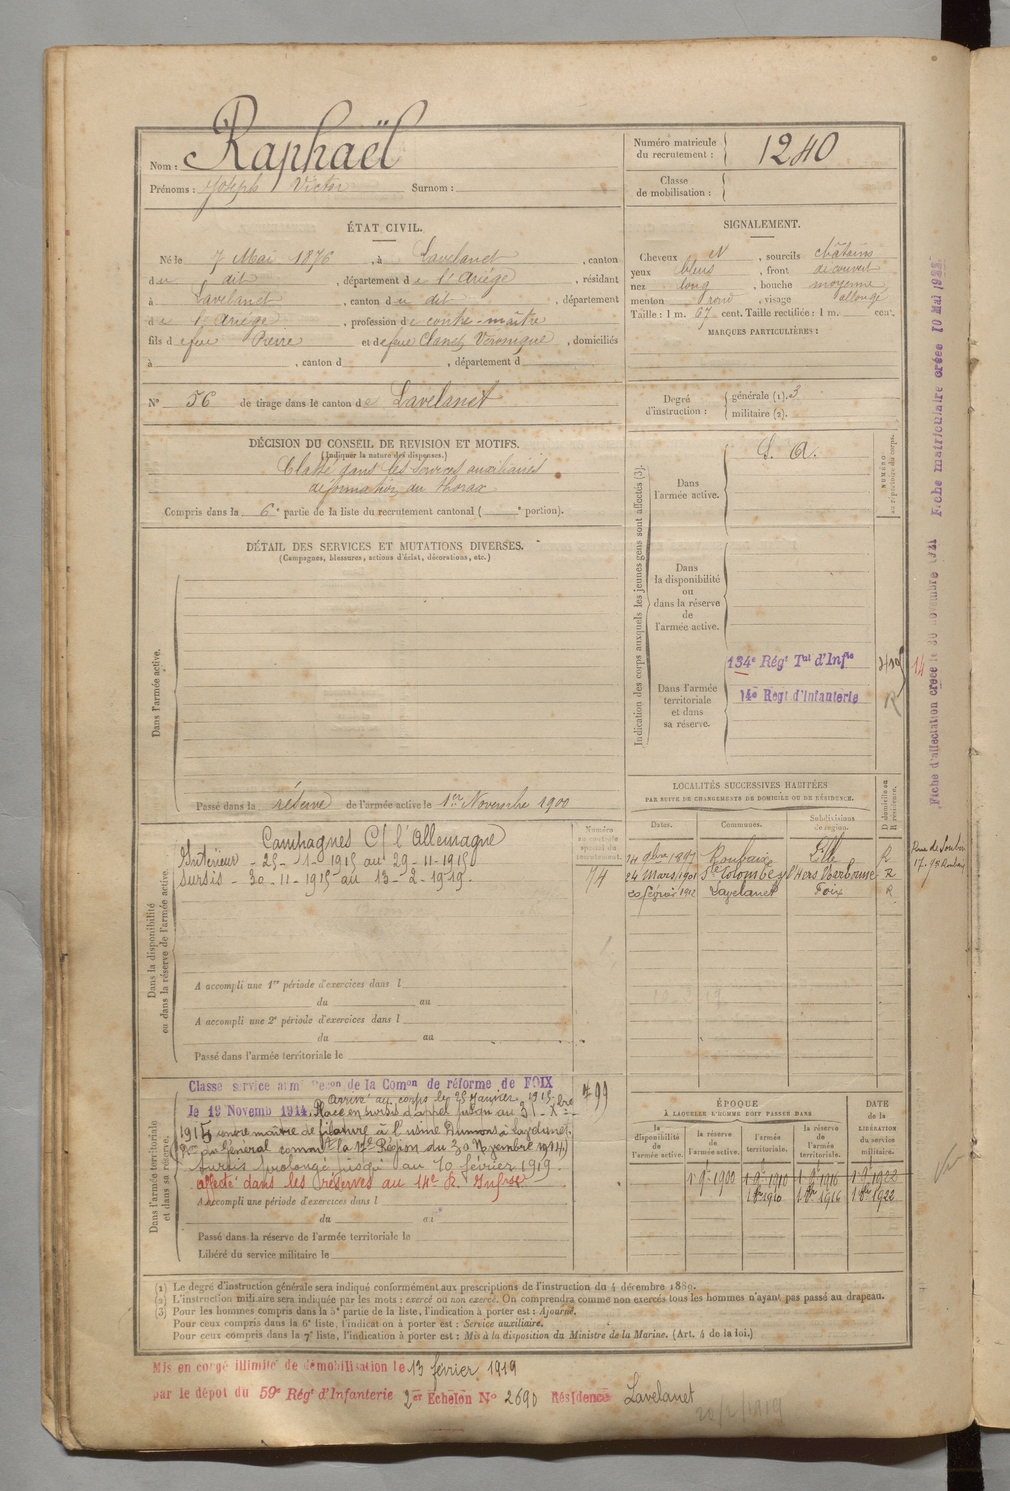 Nom : Raphaël
Prénoms : Joseph Victor Surnom :
Numéro matricule du recrutement : 1240
Classe de mobilisation :
ÉTAT CIVIL.
Né le 7 Mai 1876, à Lavelanet, canton
du dit, département de l'Ariège, résidant
à Lavelanet, canton du dit, département
de l'Ariège, profession de contre-maître
fils de feu Pierre et de feue Clanet Véronique, domiciliés
à , canton d , département d
N° 56 de tirage dans le canton de Lavelanet
SIGNALEMENT.
Cheveux et, sourcils châtains
yeux bleus, front découvert
nez long, bouche moyenne
menton rond, visage allongé
Taille : 1 m. 67 cent. Taille rectifiée : 1 m. cent.
MARQUES PARTICULIÈRES :
Degré d'instruction : générale (1). 3
militaire (2).
DÉCISION DU CONSEIL DE REVISION ET MOTIFS.
(Indiquer la nature des dispenses.)
Classé dans les services auxiliaires
déformation du thorax
Compris dans la 6e partie de la liste du recrutement cantonal ( e portion).
DÉTAIL DES SERVICES ET MUTATIONS DIVERSES.
(Campagnes, blessures, actions d'éclat, décorations, etc.)
Dans l'armée active.
Passé dans la réserve de l'armée active le 1er Novembre 1900
Indication des corps auxquels les jeunes gens sont affectés (3).
NUMÉRO au répertoire du corps.
Dans l'armée active.
S. A.
Dans la disponibilité ou dans la réserve de l'armée active.
Dans l'armée territoriale et dans sa réserve.
134e Régt Tal d'Infie
14e Regt d'Infanterie
R
14
Fiche d'affectation créée le 30 novembre 1921 Fiche matriculaire créée 10 Mai 1922
LOCALITÉS SUCCESSIVES HABITÉES
PAR SUITE DE CHANGEMENTS DE DOMICILE OU DE RÉSIDENCE.
Dates. Communes. Subdivisions de région. D. domicile ou R. résidence.
14 9bre 1897 Roubaix Lille R
24 mars 1901 Ste Colombe s/ l'Hers Narbonne R
20 février 1912 Lavelanet Foix R
Dans la disponibilité ou dans la réserve de l'armée active.
Numéro au contrôle spécial du recrutement.
74
Campagnes C/ l'Allemagne
Intérieur - 25 - 1 - 1915 au 29-11-1915
Sursis - 30-11-1915 au 13-2-1919.
A accompli une 1re période d'exercices dans l
du au
A accompli une 2e période d'exercices dans l
du au
Passé dans l'armée territoriale le
Dans l'armée territoriale et dans sa réserve.
799
Classé service armé Décon de la Comon de réforme de FOIX
le 19 Novemb 1914. Arrivé au corps le 25 Janvier 1915.
Placé en sursis d'appel jusqu'au 31 Xbre
1915 contre maître de filature à l'usine Dumons à Lavelanet.
Don du Général commt la 17e Région du 30 Novembre 1914)
Sursis prolongé jusqu'au 10 février 1919.
affecté dans les réserves au 14e R. Infie
A accompli une période d'exercices dans l
du au
Passé dans la réserve de l'armée territoriale le
Libéré du service militaire le
ÉPOQUE
À LAQUELLE L'HOMME DOIT PASSER DANS
DATE de la LIBÉRATION du service militaire.
la disponibilité de l'armée active. la réserve de l'armée active. l'armée territoriale. la réserve de l'armée territoriale.
1er 9e 1900 1er 9e 1910 1er 9e 1916 1er 9e 1922
1er 8bre 1910 1er 8bre 1916 1er 8bre 1922
(1) Le degré d'instruction générale sera indiqué conformément aux prescriptions de l'instruction du 4 décembre 1889.
(2) L'instruction militaire sera indiquée par les mots : exercé ou non exercé. On comprendra comme non exercés tous les hommes n'ayant pas passé au drapeau.
(3) Pour les hommes compris dans la 5e partie de la liste, l'indication à porter est : Ajourné.
Pour ceux compris dans la 6e liste, l'indication à porter est : Service auxiliaire.
Pour ceux compris dans la 7e liste, l'indication à porter est : Mis à la disposition du Ministre de la Marine. (Art. 4 de la loi.)
Mis en congé illimité de démobilisation le 13 février 1919
par le dépot du 59e Régt d'Infanterie 2er Echelon N° 2690 Résidence Lavelanet
20/2/1919